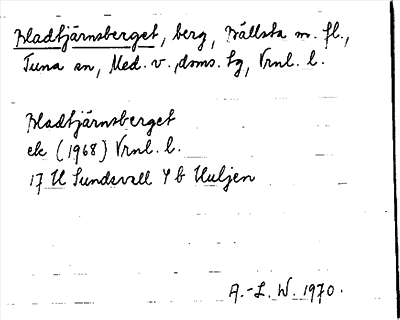 Bladtjärnsberget, berg, Vällsta m. fl.,
Tuna sn, Med. v. doms. tg, Vrnl. l.
Bladtjärnsberget
ek (1968) Vrnl. l.
17 H Sundsvall 4 b Huljen
A.-L. W. 1970.